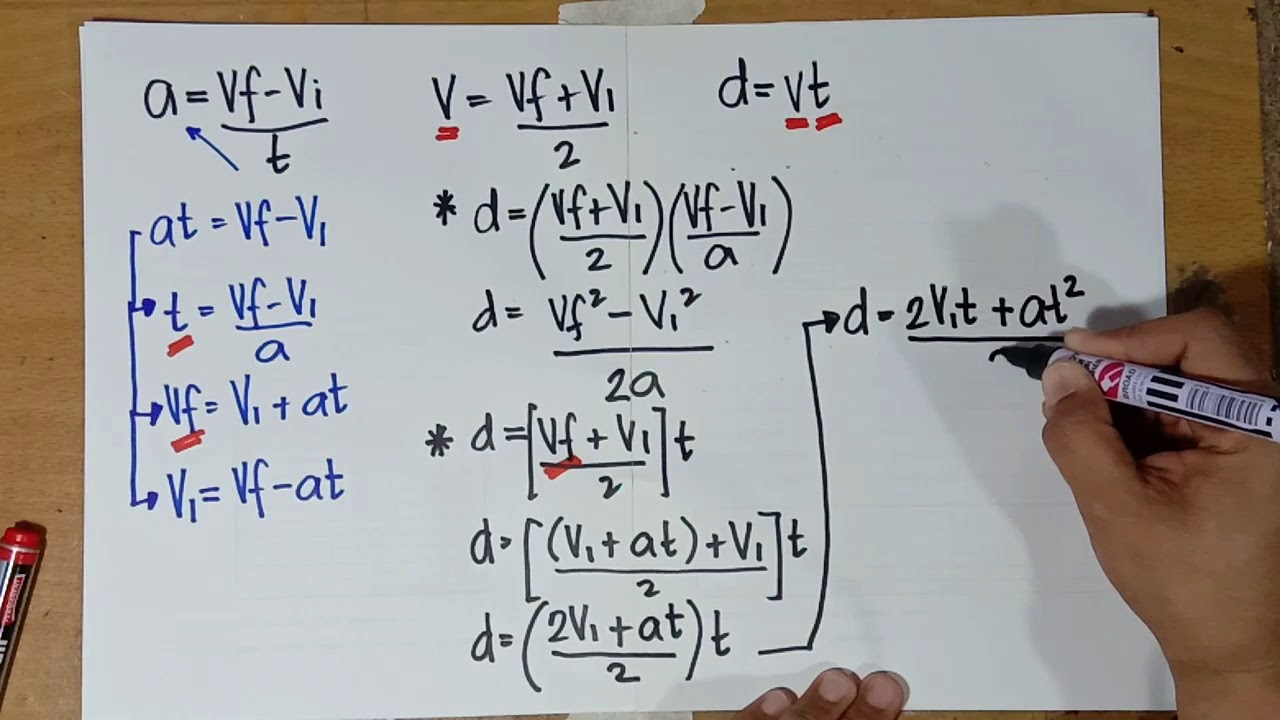 a = Vf - Vi / t
at = Vf - V1
t = Vf - V1 / a
Vf = V1 + at
V1 = Vf - at
V = Vf + V1 / 2
d = vt
* d = (Vf + V1 / 2)(Vf - V1 / a)
d = Vf² - V1² / 2a
* d = [Vf + V1 / 2] t
d = [(V1 + at) + V1 / 2] t
d = (2V1 + at / 2) t
d = 2V1t + at²
BROAD